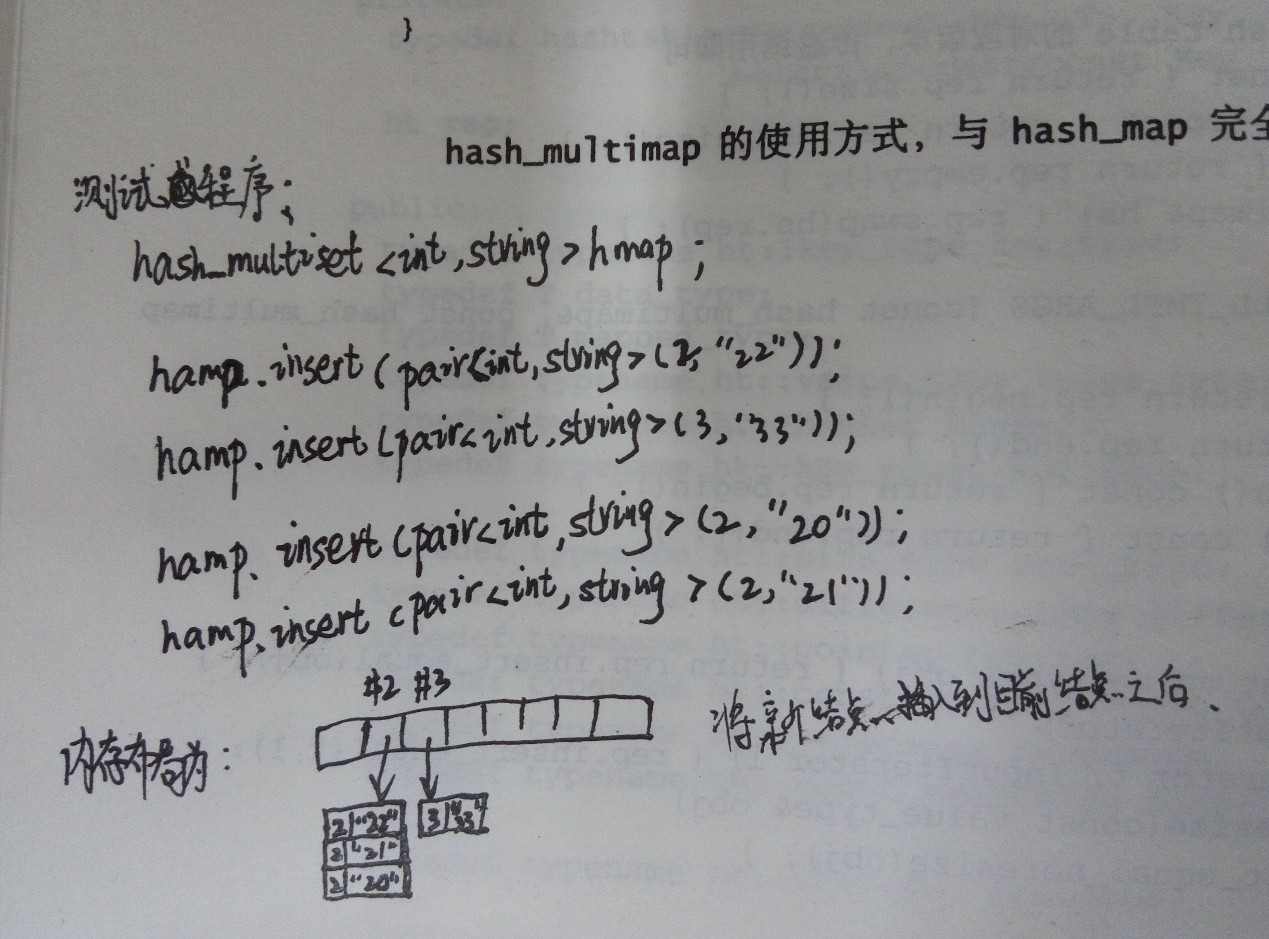 }
hash_multimap 的使用方式，与 hash_map 完全
测试程序：
hash_multiset <int,string> hmap;
hamp.insert(pair<int,string>(2,"22"));
hamp.insert(pair<int,string>(3,"33"));
hamp.insert(pair<int,string>(2,"20"));
hamp.insert(pair<int,string>(2,"21"));
#2 #3
将新结点插入到目前结点之后.
内存布局为:
2 "22" 3 "33"
2 "21"
2 "20"